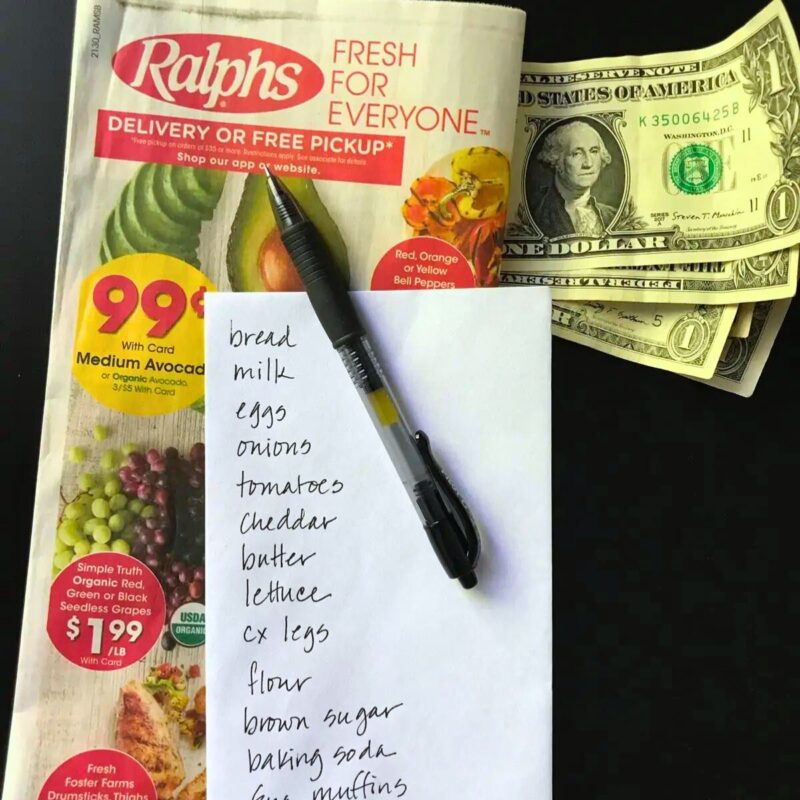 2130_RAMSB
Ralphs
FRESH
FOR
EVERYONE™
DELIVERY OR FREE PICKUP*
*Free pickup on orders of $35 or more. Restrictions apply. See associate for details.
Shop our app or website.
99¢
With Card
Medium Avocad
or Organic Avocado,
3/$5 With Card
Red, Orange
or Yellow
Bell Peppers
Simple Truth
Organic Red,
Green or Black
Seedless Grapes
$1.99
/LB
With Card
USDA
ORGANIC
Fresh
Foster Farms
Drumsticks, Thighs
bread
milk
eggs
onions
tomatoes
cheddar
butter
lettuce
cx legs
flour
brown sugar
baking soda
muffins
AL RESERVE NOTE
D STATES OF AMERICA
K 35006425 B
WASHINGTON, D.C.
11
11
SERIES
2017
ONE DOLLAR
1
1
FEDERAL RESERVE
5
1